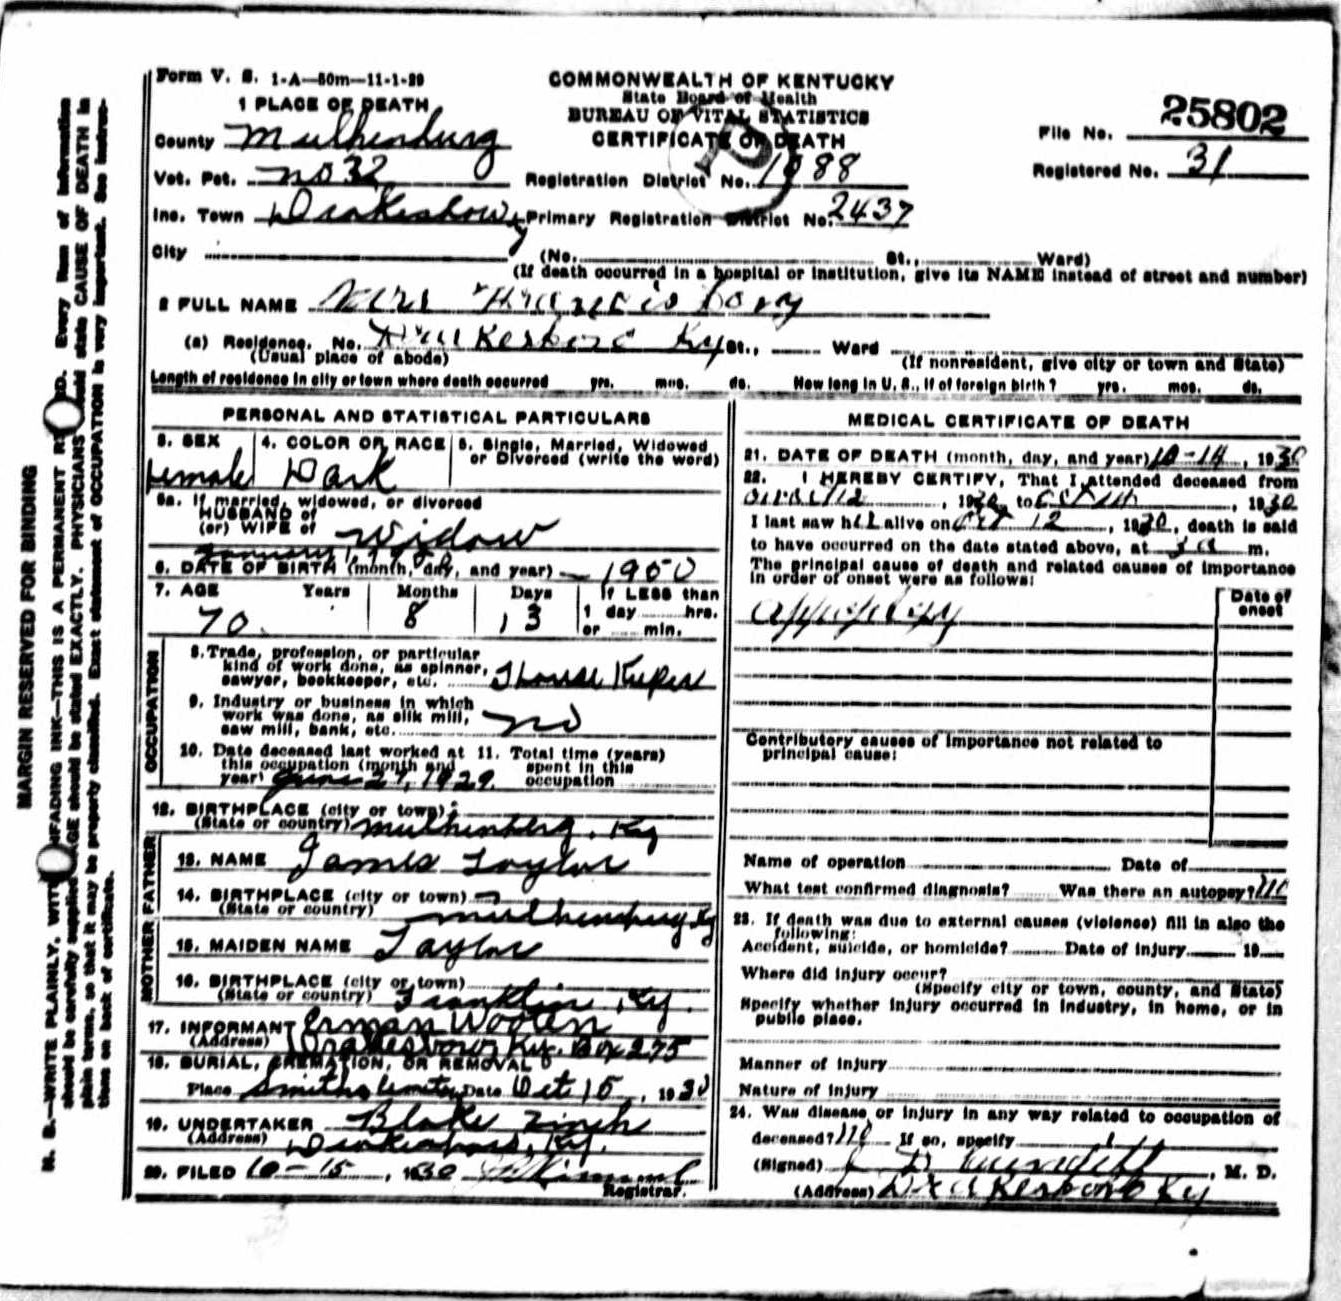 Form V. S. 1-A—50m—11-1-29
COMMONWEALTH OF KENTUCKY
State Board of Health
BUREAU OF VITAL STATISTICS
CERTIFICATE OF DEATH
File No. 25802
Registered No. 31
1 PLACE OF DEATH
County Muhlenburg
Vot. Pct. no 32
Registration District No. 1088
Inc. Town Drakesboro, Ky
Primary Registration District No. 2437
City
(No. St., Ward)
(If death occurred in a hospital or institution, give its NAME instead of street and number)
2 FULL NAME Mrs Francis
(a) Residence. No. Drakesboro Ky St., Ward
(Usual place of abode)
(If nonresident, give city or town and State)
Length of residence in city or town where death occurred yrs. mos. ds. How long in U. S., if of foreign birth? yrs. mos. ds.
PERSONAL AND STATISTICAL PARTICULARS
3. SEX
female
4. COLOR OR RACE
Dark
5. Single, Married, Widowed
or Divorced (write the word)
5a. If married, widowed, or divorced
HUSBAND of
(or) WIFE of Widow
January 1,
6. DATE OF BIRTH (month, day, and year)
7. AGE Years Months Days If LESS than
1 day hrs.
or min.
70 8 13
OCCUPATION
8. Trade, profession, or particular
kind of work done, as spinner,
sawyer, bookkeeper, etc. House Keeper
9. Industry or business in which
work was done, as silk mill,
saw mill, bank, etc. no
10. Date deceased last worked at
this occupation (month and
year) June 27, 1929.
11. Total time (years)
spent in this
occupation
12. BIRTHPLACE (city or town)
(State or country) Muhlenberg, Ky
FATHER
13. NAME James Taylor
14. BIRTHPLACE (city or town)
(State or country) Muhlenburg Ky
MOTHER
15. MAIDEN NAME Taylor
16. BIRTHPLACE (city or town)
(State or country) Franklin, Ky.
17. INFORMANT Erman Wooten
(Address) Drakesboro, Ky. Box 275
18. BURIAL, CREMATION, OR REMOVAL
Place Smiths Date Oct 15, 1930
19. UNDERTAKER Blake
(Address) Drakesboro, Ky.
20. FILED 10-15, 1930
Registrar.
MEDICAL CERTIFICATE OF DEATH
21. DATE OF DEATH (month, day, and year) 10-14, 1930
22. I HEREBY CERTIFY, That I attended deceased from
Oct 12, 1930, to Oct 14, 1930
I last saw her alive on Oct 12, 1930, death is said
to have occurred on the date stated above, at 3 a m.
The principal cause of death and related causes of importance
in order of onset were as follows:
Date of
onset
Appoplexy
Contributory causes of importance not related to
principal cause:
Name of operation Date of
What test confirmed diagnosis? Was there an autopsy? no
23. If death was due to external causes (violence) fill in also the
following:
Accident, suicide, or homicide? Date of injury 19
Where did injury occur?
(Specify city or town, county, and State)
Specify whether injury occurred in industry, in home, or in
public place.
Manner of injury
Nature of injury
24. Was disease or injury in any way related to occupation of
deceased? no If so, specify
(Signed) , M. D.
(Address) Drakesboro Ky
MARGIN RESERVED FOR BINDING
N. B.—WRITE PLAINLY, WITH UNFADING INK—THIS IS A PERMANENT RECORD. Every item of information
should be carefully supplied. AGE should be stated EXACTLY. PHYSICIANS should state CAUSE OF DEATH in
plain terms, so that it may be properly classified. Exact statement of OCCUPATION is very important. See instruc-
tions on back of certificate.